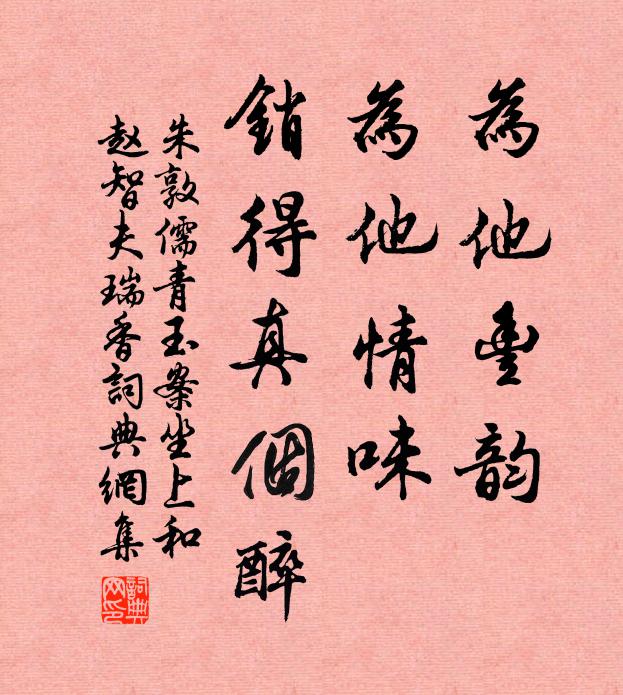 為他豐韵
為他情味
銷得真個醉
朱敦儒青玉案坐上和
赵智夫瑞香詞典網集
詞典网印